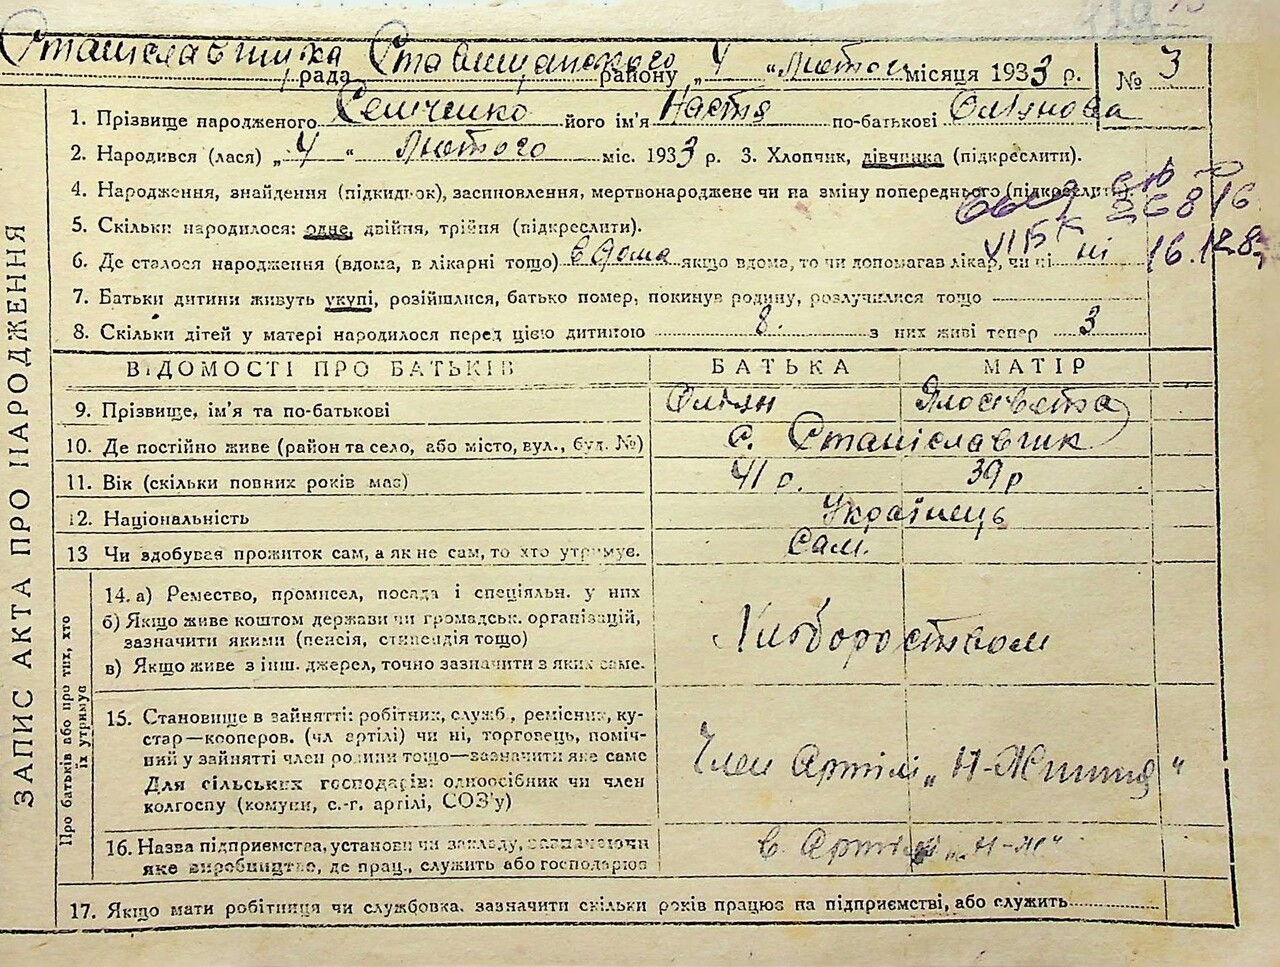 Станіславчика рада Ставищанського району „4“ Лютого місяця 1933 р. № 3
1. Прізвище народженого Семченко його ім'я Настя по-батькові Омлянова
2. Народився (лася) „4“ Лютого міс. 1933 р. 3. Хлопчик, дівчинка (підкреслити).
4. Народження, знайдення (підкидьок), засиновлення, мертвонароджене чи на зміну попереднього (підкреслити)
5. Скільки народилося: одне, двійня, трійня (підкреслити).
6. Де сталося народження (вдома, в лікарні тощо) в дома якщо вдома, то чи допомагав лікар, чи ні ні 16.12.8
7. Батьки дитини живуть укупі, розійшлися, батько помер, покинув родину, розлучилися тощо
8. Скільки дітей у матері народилося перед цією дитиною 8. з них живі тепер 3
ЗАПИС АКТА ПРО НАРОДЖЕННЯ
ВІДОМОСТІ ПРО БАТЬКІВ БАТЬКА МАТІР
9. Прізвище, ім'я та по-батькові Омлян Ялосвета
10. Де постійно живе (район та село, або місто, вул., буд. №) с. Станіславчик
11. Вік (скільки повних років має) 41 р. 39 р
12. Національність Українець
13 Чи здобував прожиток сам, а як не сам, то хто утримує. Сам.
Про батьків або про тих, хто їх утримує
14. а) Ремество, промисел, посада і спеціяльн. у них
б) Якщо живе коштом держави чи громадськ. організацій,
зазначити якими (пенсія, стипендія тощо) Хліборобством
в) Якщо живе з інш. джерел, точно зазначити з яких саме.
15. Становище в зайнятті: робітник, служб., ремісник, ку-
стар—кооперов. (чл артілі) чи ні, торговець, поміч-
ний у зайнятті член родини тощо—зазначити яке саме Член Артілі „Н-Життя“
Для сільських господарів: одноосібник чи член
колгоспу (комуни, с.-г. артілі, СОЗ'у)
16. Назва підприємства, установи чи закладу, зазначаючи в Артілі „Н-Ж“
яке виробництво, де прац., служить або господарює
17. Якщо мати робітниця чи службовка, зазначити скільки років працює на підприємстві, або служить